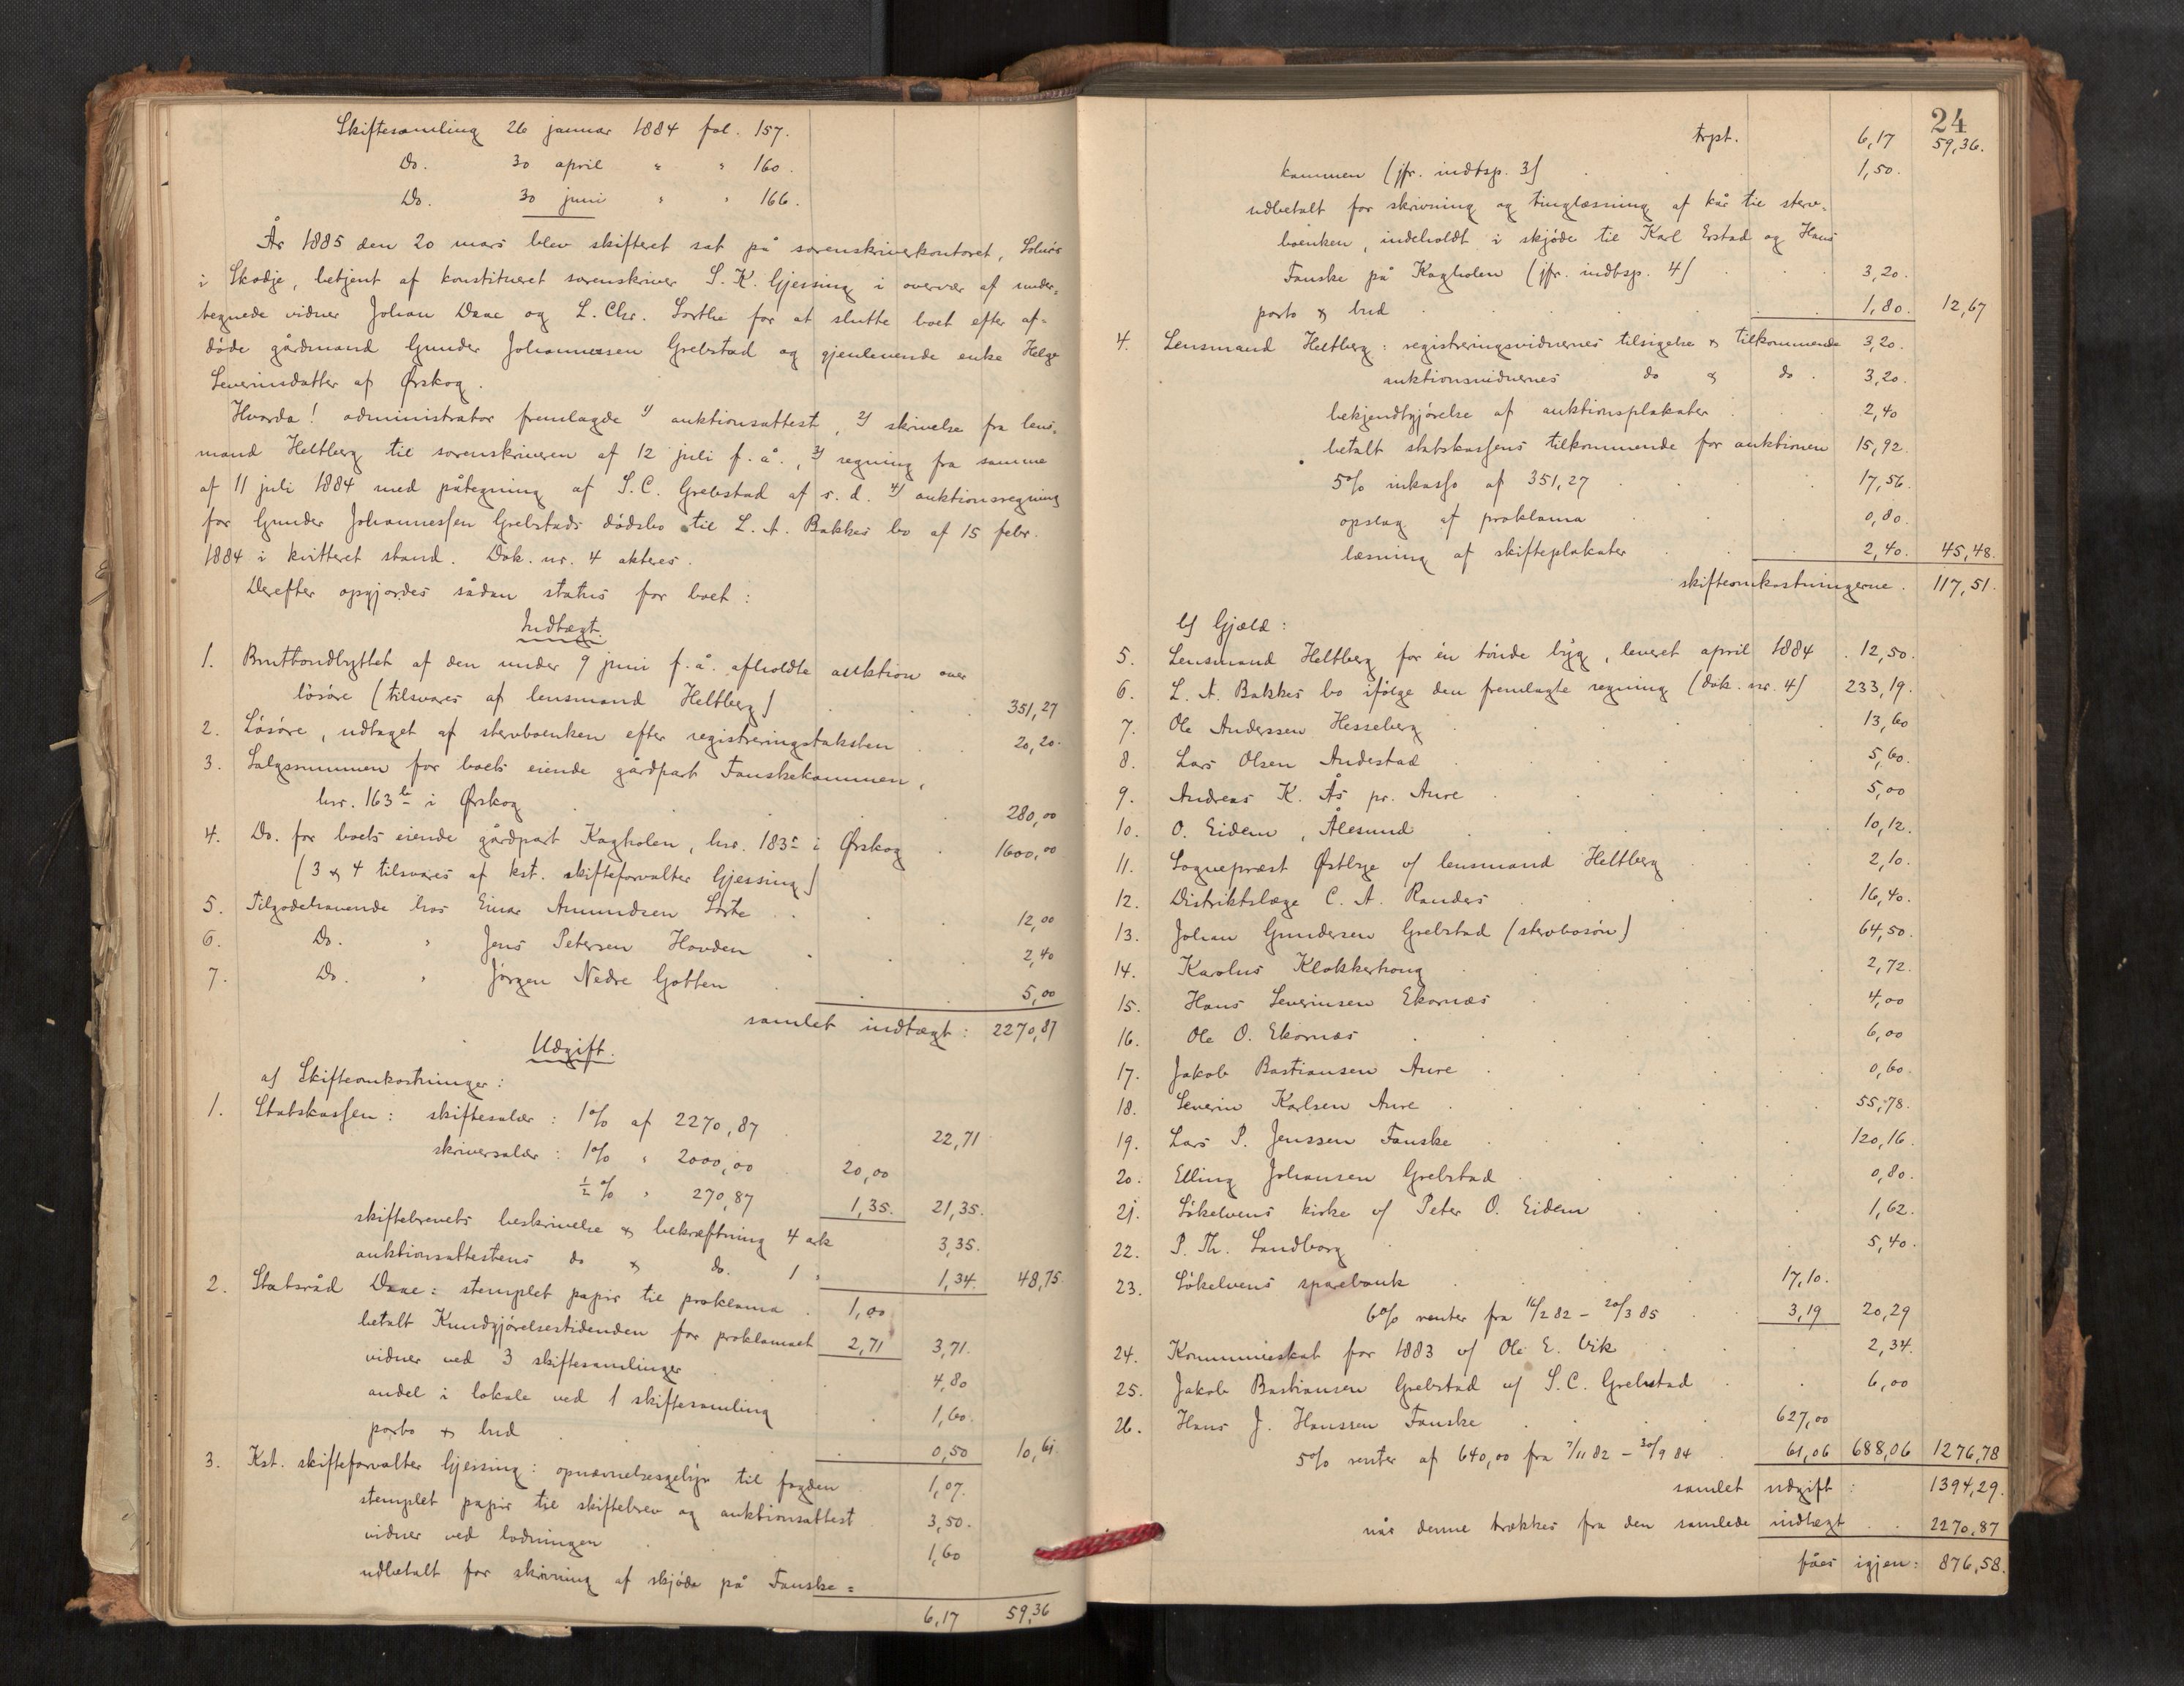 Skiftesamling 26 januar 1884 fol. 157.
Do. 30 april " " 160.
Do. 30 juni " " 166.
År 1885 den 20 mars blev skifteret sat på sorenskriverkontoret, Solnör
i Skodje, betjent af konstitueret sorenskriver S. K. Gjessing i overvær af under-
tegnede vidner Johan Daae og L. Chr. Sorthe for at slutte boet efter af-
døde gårdmand Gunder Johannessen Grebstad og gjenlevende enke Helge
Severinsdatter af Ørskog.
Hvorda! administrator fremlagde 1) auktionsattest, 2) skrivelse fra lens-
mand Heltberg til sorenskriveren af 12 juli f. å., 3) regning fra samme
af 11 juli 1884 med påtegning af S. C. Grebstad af s. d. 4) auktionsregning
for Gunder Johannessen Grebstads dödsbo til L. A. Bakkes bo af 15 febr.
1884 i kvitteret stand. Dok. nr. 4 akteres.
Derefter opgjordes sådan status for boet:
Indtægt.
1. Bruttoudbyttet af den under 9 juni f. å. afholdte auktion over
lösöre (tilsvares af lensmand Heltberg) 351,27
2. Lösöre, udtaget af stervboenken efter registreringstaksten 20,20.
3. Salgssummen for boets eiende gårdpart Fauskekammen,
lnr. 163 b i Ørskog 280,00
4. Do. for boets eiende gårdpart Kagholen, lnr. 183 c i Ørskog 1600,00
(3 & 4 tilsvares af kst. skifteforvalter Gjessing)
5. Tilgodehavende hos Einar Amundsen Sorte 12,00
6. Do. " Jens Petersen Hovden 2,40
7. Do. " Jörgen Nedre Gjotten 5,00
samlet indtægt: 2270,87
Udgift.
a) Skifteomkostninger:
1. Statskassen: skiftesalær: 1% af 2270,87 22,71
skriversalær: 1% " 2000,00 20,00
½% " 270,87 1,35. 21,35.
skiftebrevets beskrivelse & bekræftning 4 ark 3,35.
auktionsattestens do & do. 1 " 1,34. 48,75.
2. Statsråd Daae: stemplet papir til proklama 1,00
betalt Kundgjörelsestidenden for proklamaet 2,71 3,71.
vidner ved 3 skiftesamlinger 4,80
andel i lokale ved 1 skiftesamling 1,60.
porto & bud 0,50 10,61.
3. Kst. skifteforvalter Gjessing: opnævnelsesgebyr til fogden 1,07.
stemplet papir til skiftebrev og auktionsattest 3,50.
vidner ved lodningen 1,60
udbetalt for skrivning af skjöde på Fauske=
6,17 59,36
24
trpt. 6,17 59,36.
kammen (jfr. indtsp. 3) 1,50.
udbetalt for skrivning og tinglæsning af kår til sterv-
boenken, indeholdt i skjöde til Karl Erstad og Hans
Fauske på Kagholen (jfr. indtsp. 4) 3,20.
porto & bud 1,80. 12,67
4. Lensmand Heltberg: registreringsvidnernes tilsigelse & tilkommende 3,20.
auktionsvidnernes do & do. 3,20.
bekjendtgjörelse af auktionsplakater 2,40
betalt statskassens tilkommende for auktionen 15,92.
5% inkasso af 351,27 17,56.
opslag af proklama 0,80.
læsning af skifteplakater 2,40. 45,48.
skifteomkostningerne. 117,51.
b) Gjæld:
5. Lensmand Heltberg for én tönde byg, leveret april 1884 12,50.
6. L. A. Bakkes bo ifölge den fremlagte regning (dok. nr. 4) 233,19.
7. Ole Anderssen Hesseberg 13,60
8. Lars Olsen Andestad 5,60.
9. Andreas K. Ås pr. Aure 5,00
10. O. Eidem, Ålesund 10,12.
11. Sogneprest Østbye v/ lensmand Heltberg 2,10.
12. Distriktslæge C. A. Randers 16,40.
13. Johan Gundersen Grebstad (stervbosön) 64,50.
14. Karolus Klokkerhoug 2,72.
15. Hans Severinsen Ekornæs 4,00
16. Ole O. Ekornæs 6,00
17. Jakob Bastiansen Aure 0,60.
18. Severin Karlsen Aure 55,78.
19. Lars P. Jenssen Fauske 120,16.
20. Elling Johansen Grebstad 0,80.
21. Sökelvens kirke v/ Peter O. Eidem 1,62.
22. P. Th. Landborg 5,40.
23. Sökelvens sparebank 17,10.
6% renter fra 16/2 82 - 20/3 85 3,19 20,29
24. Kommuneskat for 1883 v/ Ole E. Vik 2,34.
25. Jakob Bastiansen Grebstad v/ S. C. Grebstad 6,00
26. Hans J. Hanssen Fauske 627,00
5% renter af 640,00 fra 7/11 82 - 30/9 84 61,06 688,06 1276,78
samlet udgift: 1394,29.
når denne trækkes fra den samlede indtægt 2270,87
fåes igjen: 876,58.